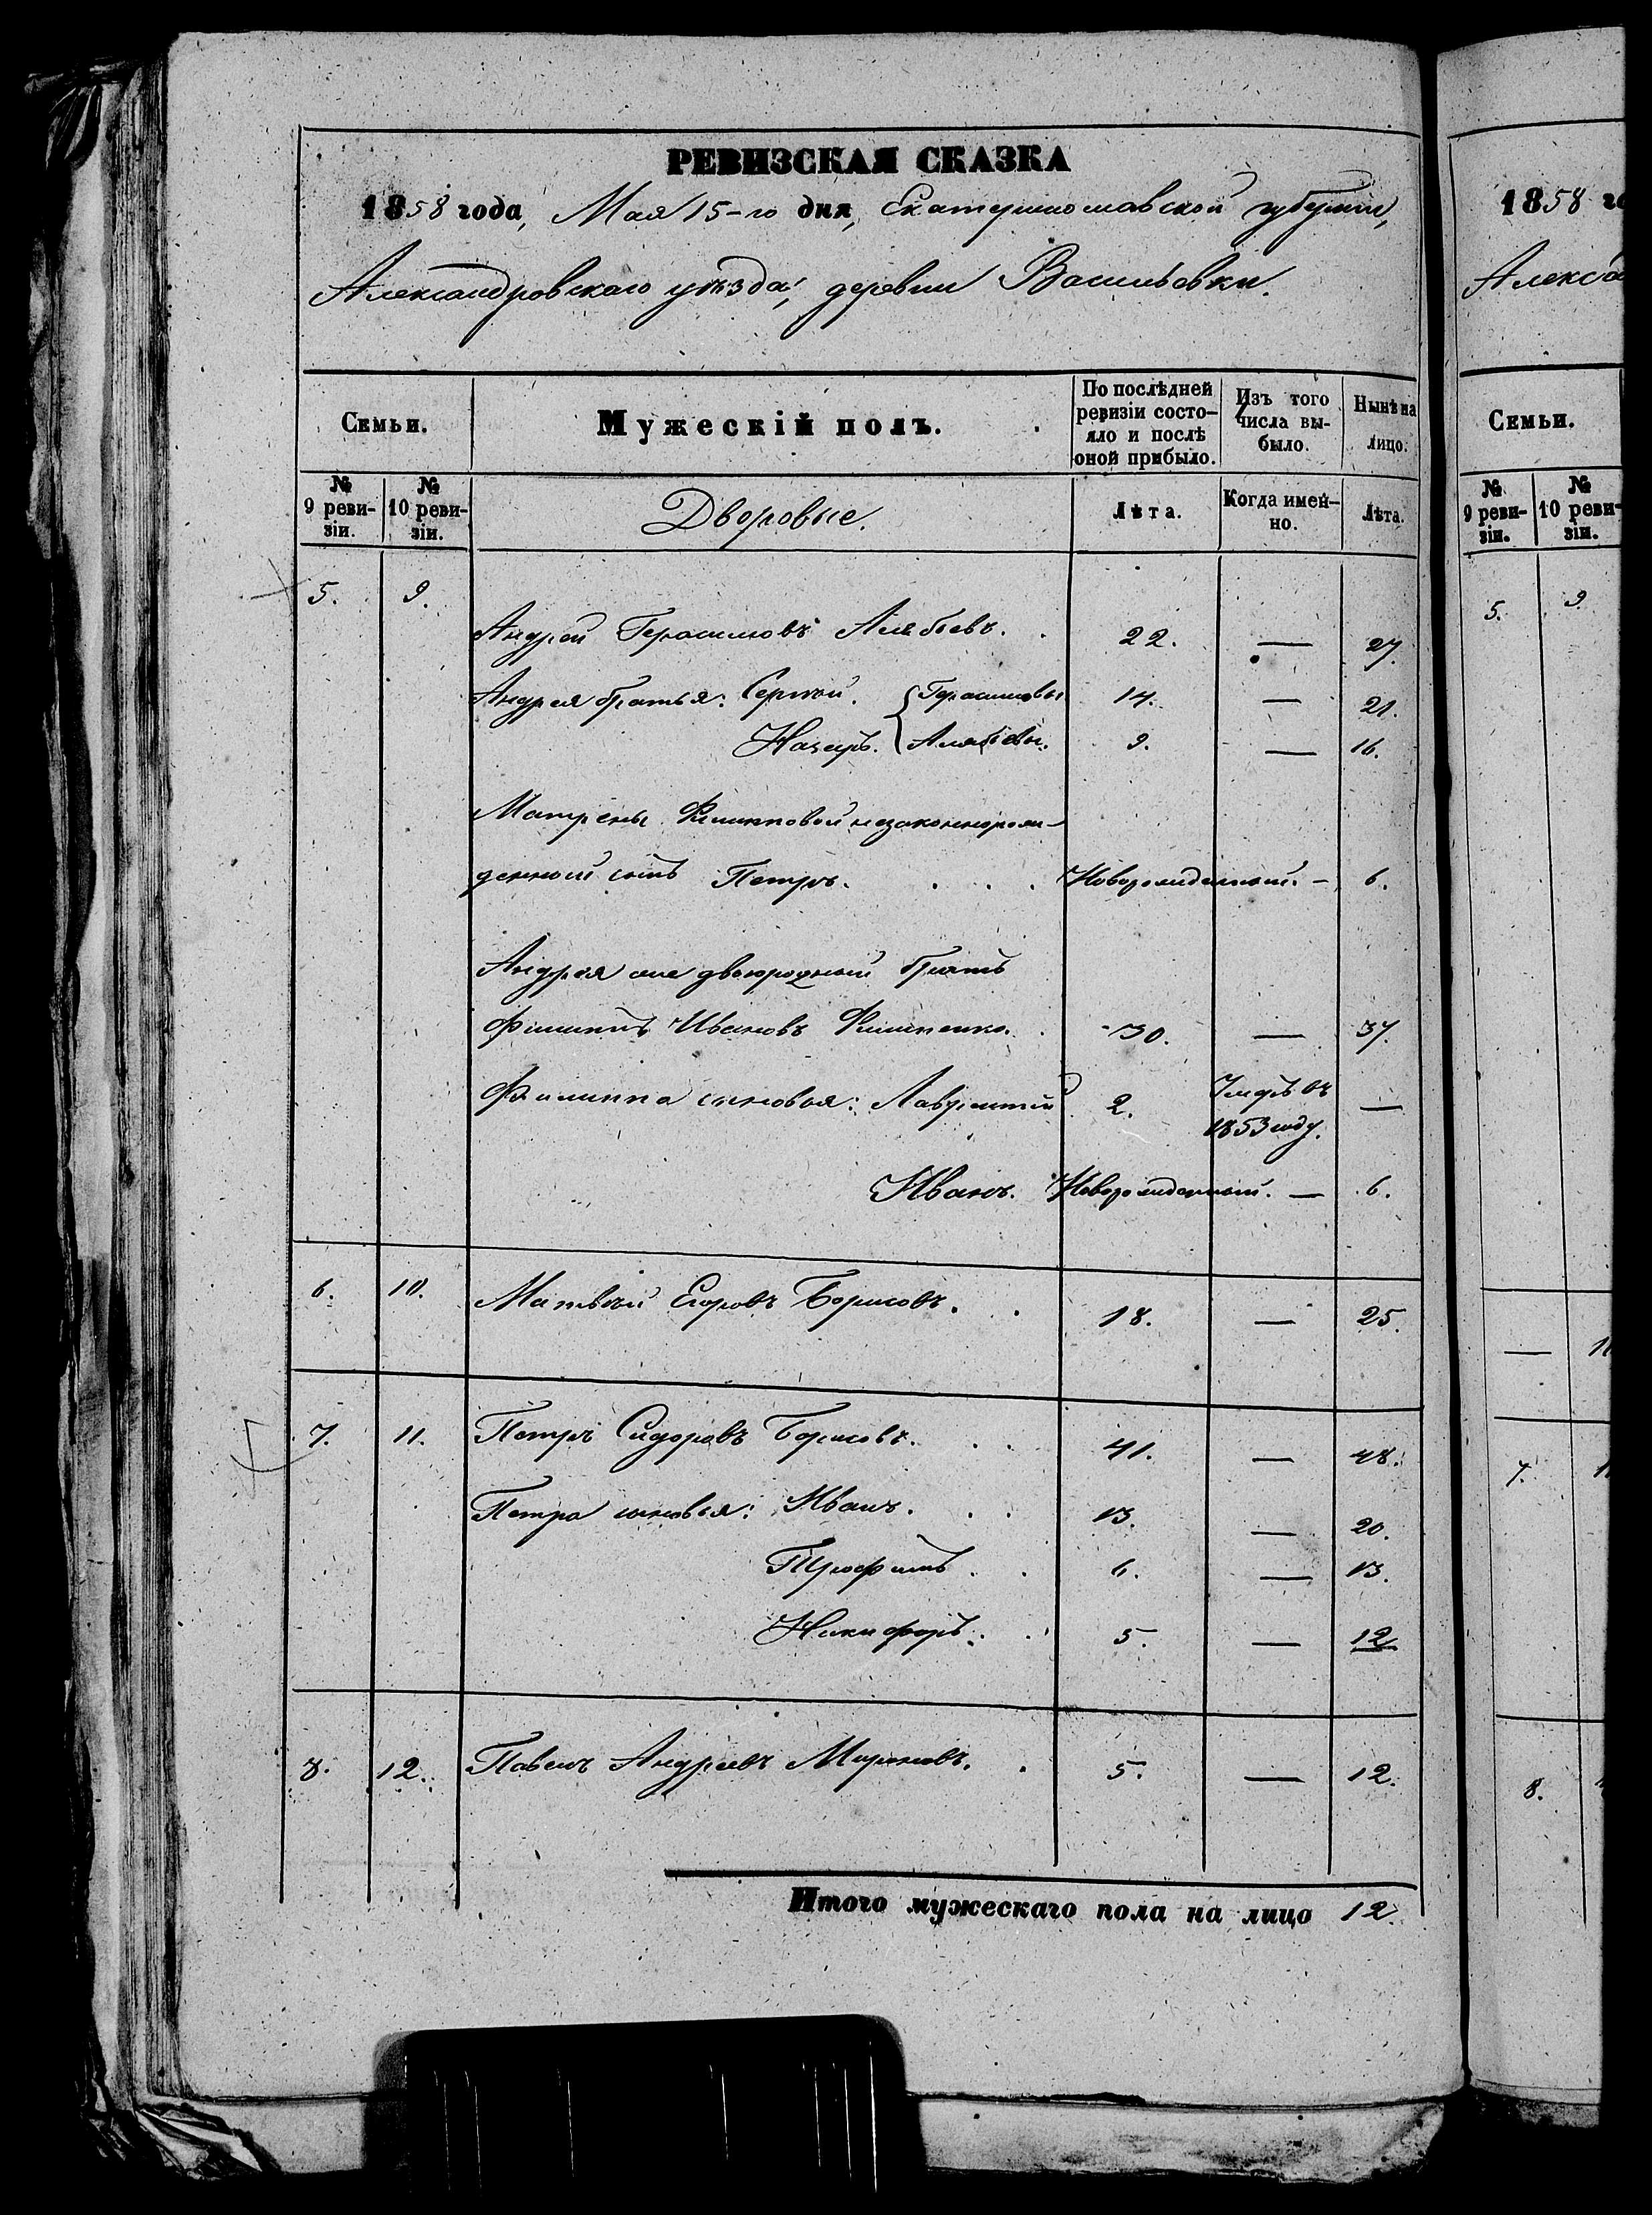 РЕВИЗСКАЯ СКАЗКА
1858 года, Мая 15-го дня, Екатеринославской губернии,
Александровскаго уѣзда, деревни Васильевки.
Семьи.
Мужескій полъ.
По послѣдней ревизіи состояло и послѣ оной прибыло.
Изъ того числа выбыло.
Нынѣ на лицо.
№ 9 ревизіи.
№ 10 ревизіи.
Дворовые.
Лѣта.
Когда именно.
Лѣта.
5. 9.
Андрей Герасимовъ Алябьевъ. 22. — 27.
Андрея братья: Сергѣй. Герасимовы 14. — 21.
Назаръ. Алябьевы. 9. — 16.
Матрены Филипповой незаконнорож-
денной сынъ Петръ. Новорожденный. — 6.
Андрея двоюродный братъ
Филиппъ Ивановъ 30. — 37.
Филиппа сыновья: Лаврентій 2. Умеръ въ 1853 году. —
Иванъ. Новорожденный. — 6.
6. 10. Матвѣй Егоровъ Борисовъ. 18. — 25.
7. 11. Петръ Сидоровъ Борисовъ. 41. — 48.
Петра сыновья: Иванъ. 13. — 20.
Трофимъ. 6. — 13.
Никифоръ. 5. — 12
8. 12. Павелъ Андреевъ Мироновъ. 5. — 12.
Итого мужескаго пола на лицо 12.
1858 го
Алекса
Семьи.
№ 9 ревизіи.
№ 10 ревизіи.
5. 9.
—
7.
8.